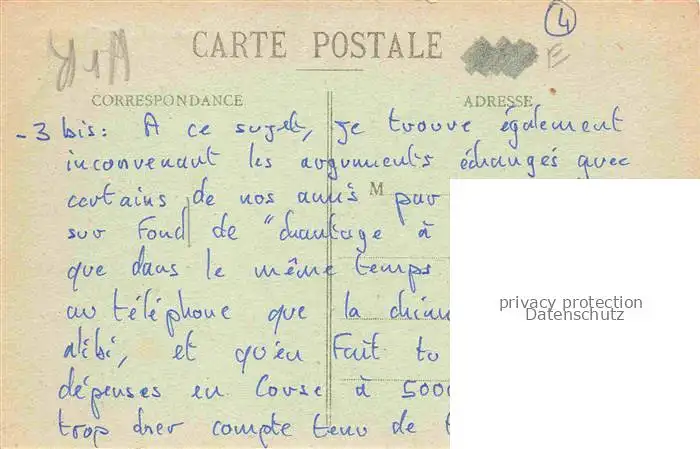 4
CARTE POSTALE
E
CORRESPONDANCE
ADRESSE
- 3 bis : A ce sujet, je trouve également
inconvenant les arguments échangés avec
certains de nos amis par
M
sur fond de "chantage à
que dans le même temps
au téléphone que la
privacy protection
Datenschutz
alibi, et qu'en fait tu
dépenses en Corse à 5000
trop cher compte tenu de